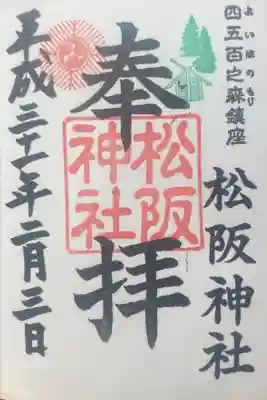 四五百之森鎮座
よいほのもり
松阪神社
奉拝
松阪
神社
平成三十一年二月三日